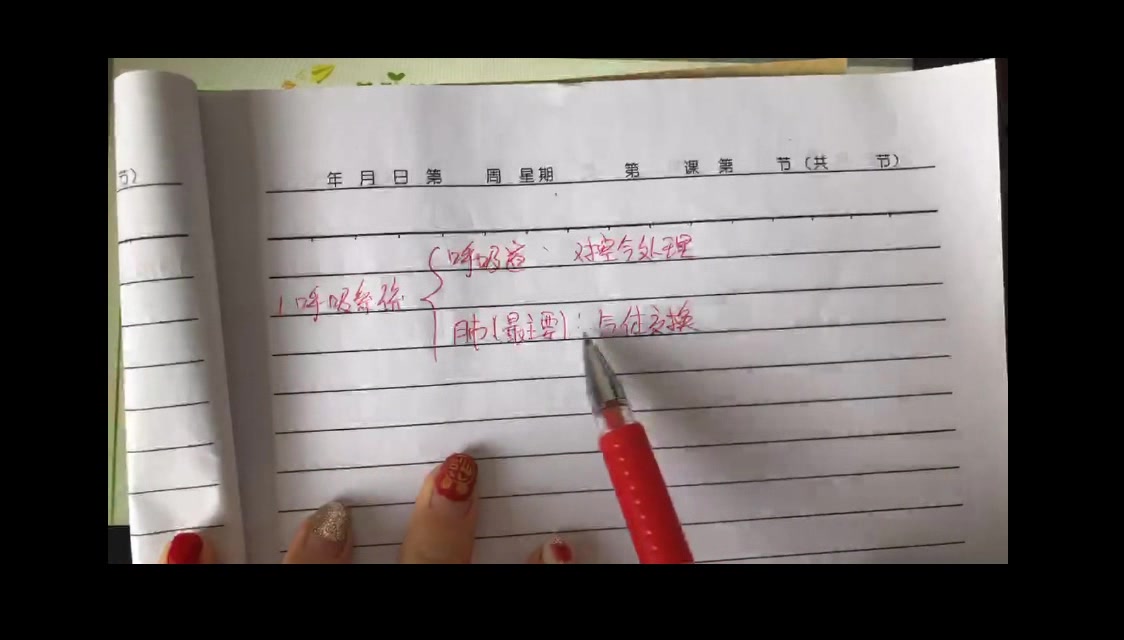 节)
年 月 日 第 周 星期 第 课 第 节 (共 节)
呼吸道: 对空气处理
1 呼吸系统
肺(最主要): 气体交换